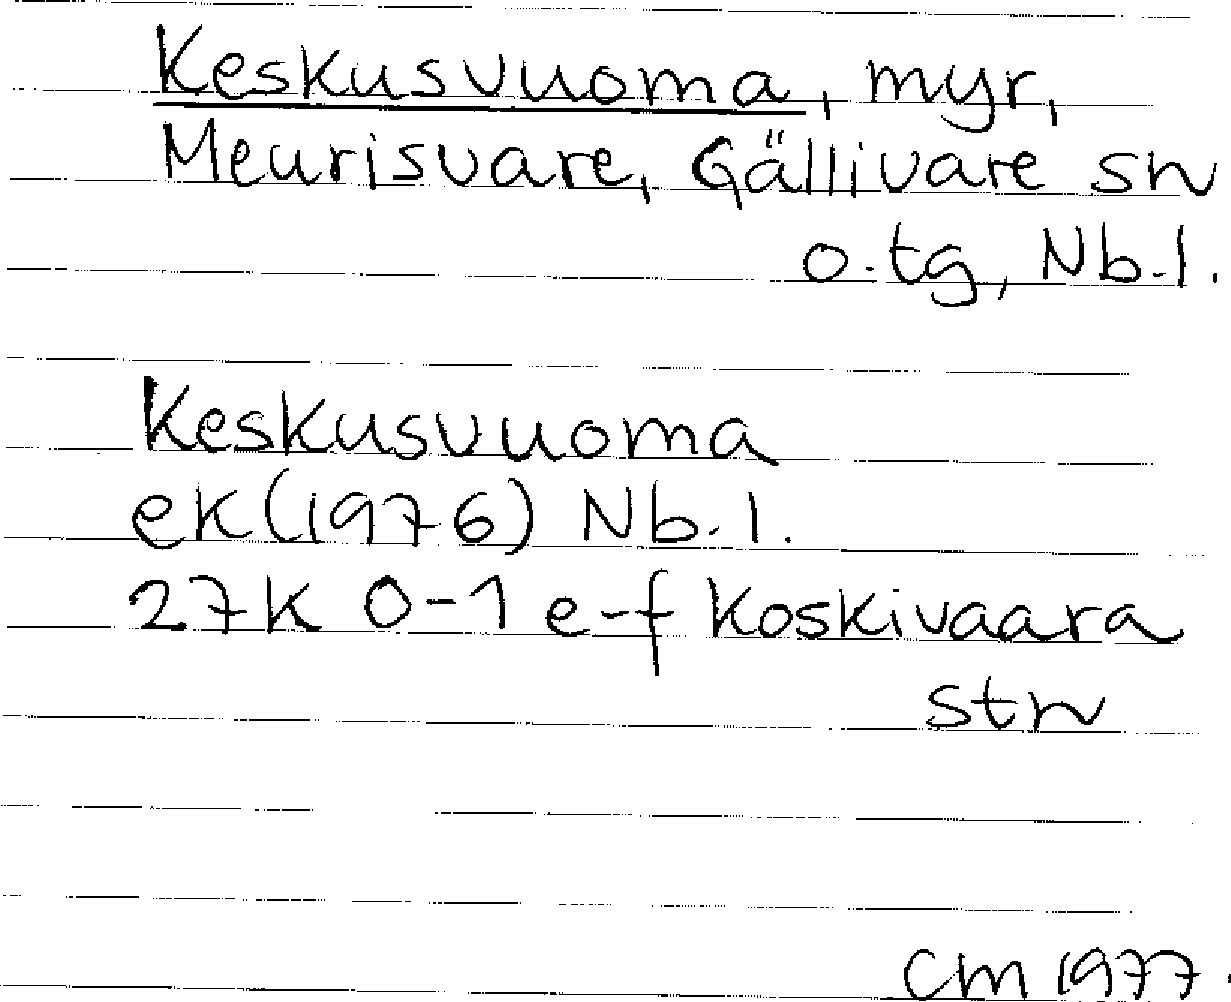 Keskusvuoma, myr,
Meurisvare, Gällivare sn
o. tg, Nb. l.
Keskusvuoma
ek (1976) Nb. l.
27K 0-1 e-f Koskivaara
stn
CM 1977.